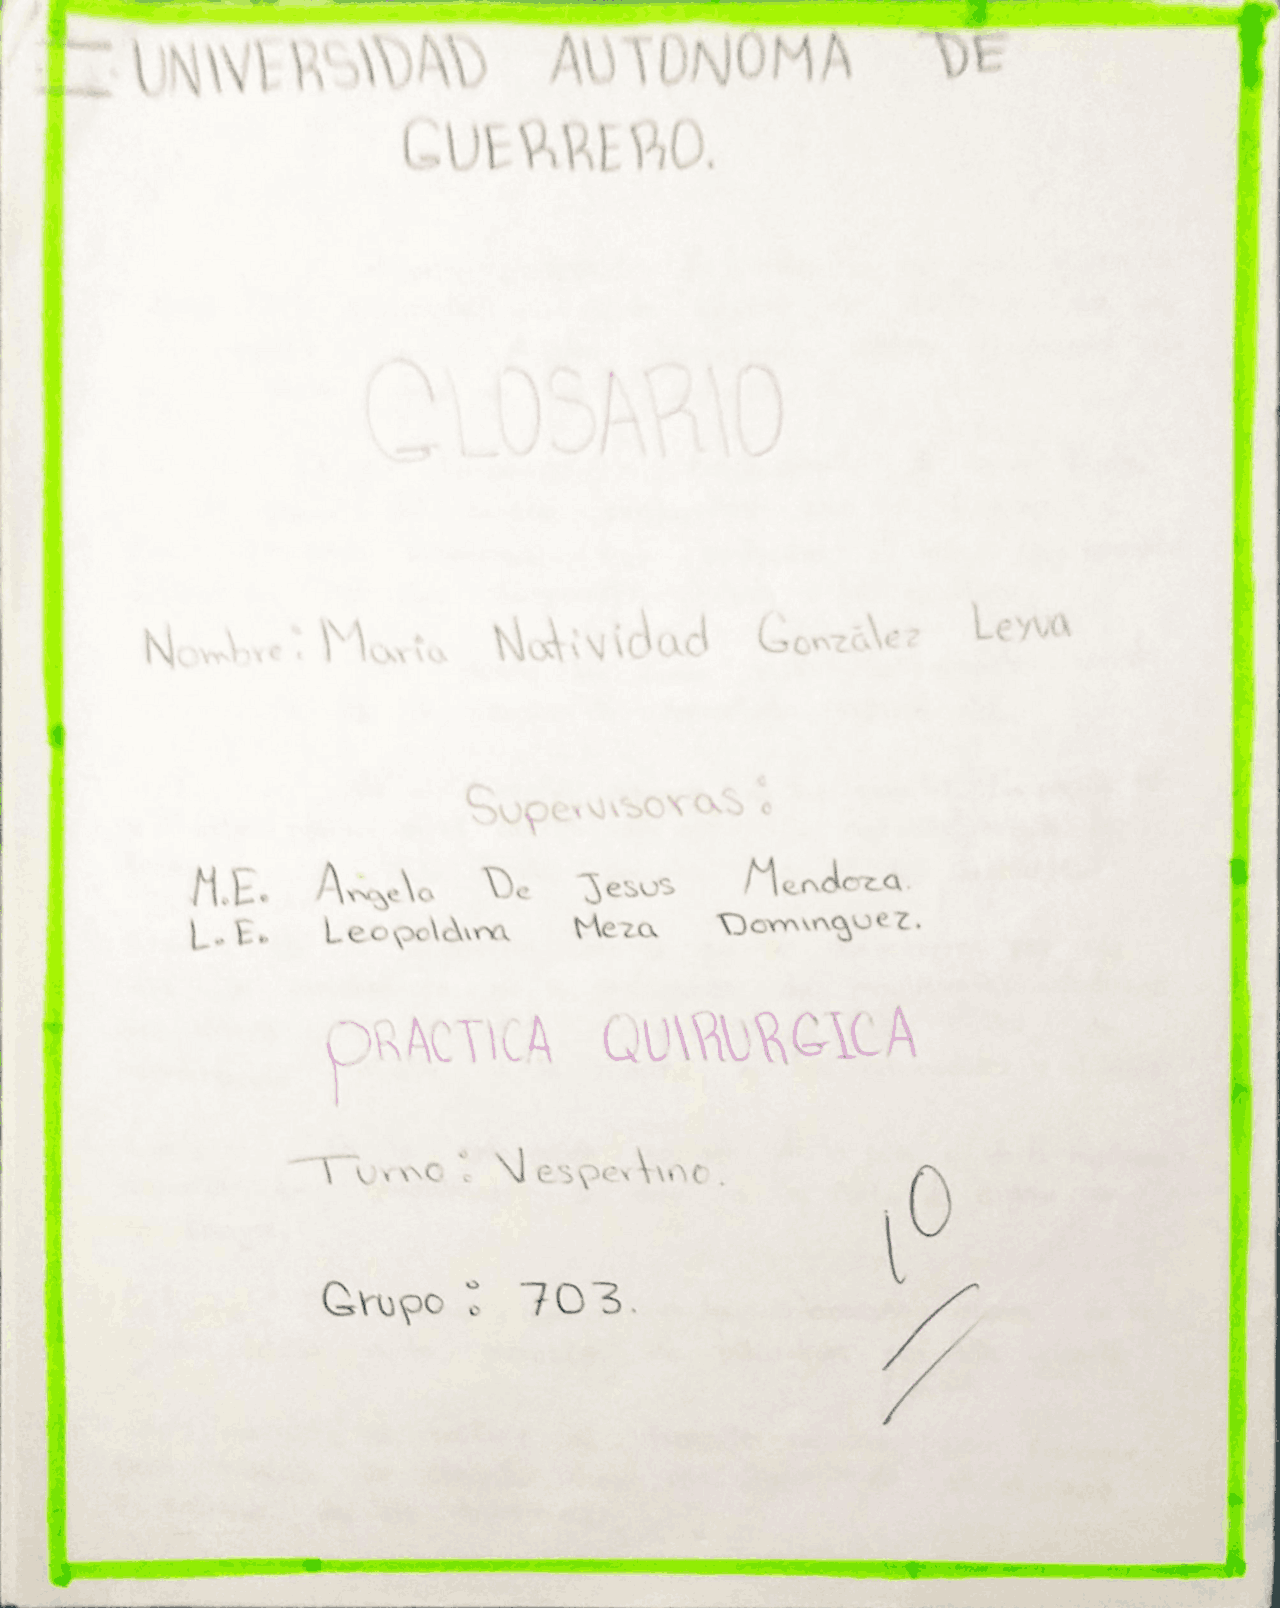 UNIVERSIDAD AUTONOMA DE
GUERRERO.
GLOSARIO
Nombre: Maria Natividad González Leyva
Supervisoras:
M.E. Angela De Jesus Mendoza.
L.E. Leopoldina Meza Dominguez.
PRACTICA QUIRURGICA
Turno: Vespertino.
10
Grupo: 703.